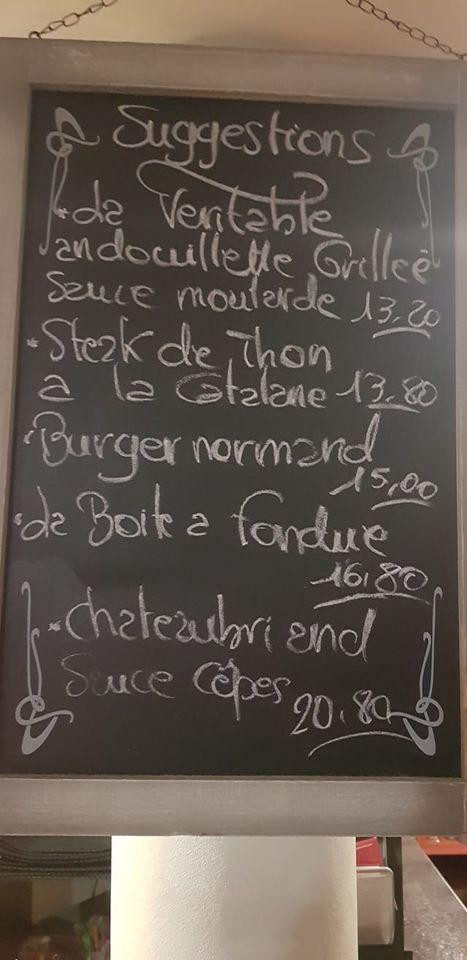 Suggestions
* La Veritable
andouillette Grilleé
Sauce moutarde 13.20
* Steak de Thon
a la Catalane 13.80
* Burger normand
15,00
* La Boite a fondue
16.80
* chateaubriand
Sauce Cêpes
20.80